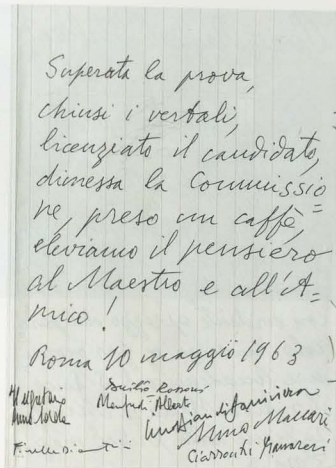 Superata la prova,
chiusi i verbali,
licenziato il candidato,
dimessa la Commissio=
ne, preso un caffè,
eleviamo il pensiero
al Maestro e all'A=
mico!
Roma 10 maggio 1963
Il segretario
Manfredi Alberti
Mino Maccari